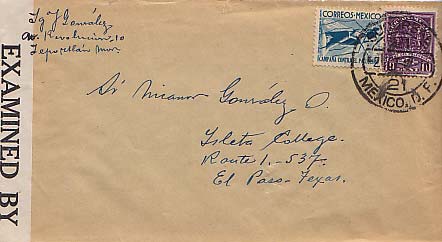 Ig J González
Av. Revolución, 10
Tepoztlán Mor.
EXAMINED BY
CORREOS MEXICO
MEXICO, D. F.
21
10
Sr Nicanor González O.
Isleta College.
Route 1.-537.
El Paso-Texas.